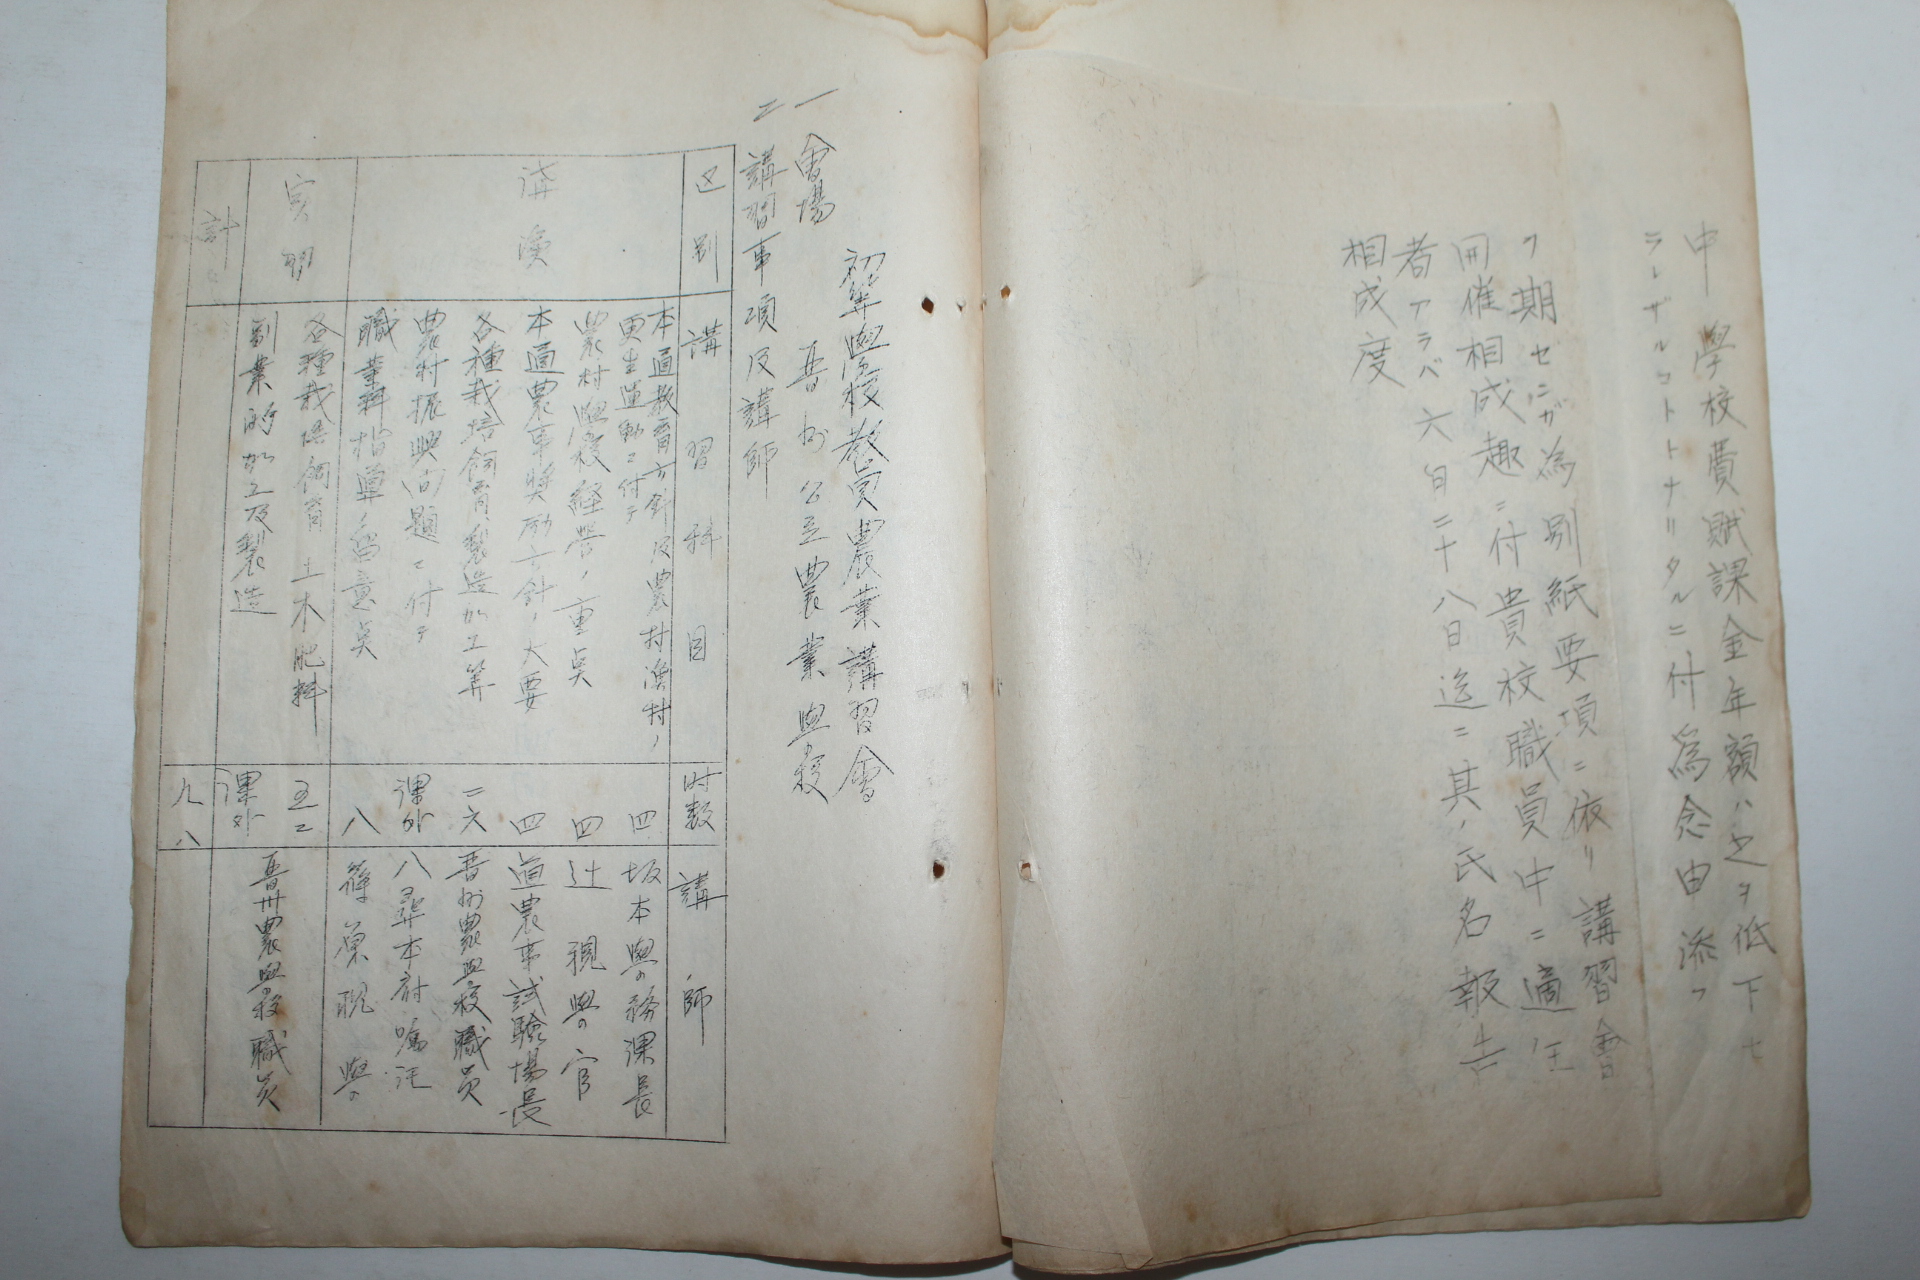 中學校費賦課金年額ハ之ヲ低下セ
ラレザルコトトナリタルニ付為念由添フ
ヲ期センガ為別紙要項ニ依リ講習會
開催相成趣ニ付貴校職員中ニ適任
者アラバ六月二十八日迄ニ其ノ氏名報告
相成度
初等學校教員農業講習會
一 會場 晋州公立農業學校
二 講習事項及講師
区別 講習科目 时数 講師
講演 本道教育方針及農村漁村ノ更生運動ニ付テ 四 坂本學務課長
農村學校経営ノ重点 四 辻視學官
本道農事奨励方針ノ大要 四 道農事試驗場長
各種栽培飼育、製造加工等 二六 晋州農學校職員
農村振興问題ニ付テ 課外 八尋本府嘱託
職業科指導ノ留意点 八 篠原視學
実習 各種栽培飼育土木肥料 五二 晋州農學校職員
副業的加工及製造 課外
計 九八